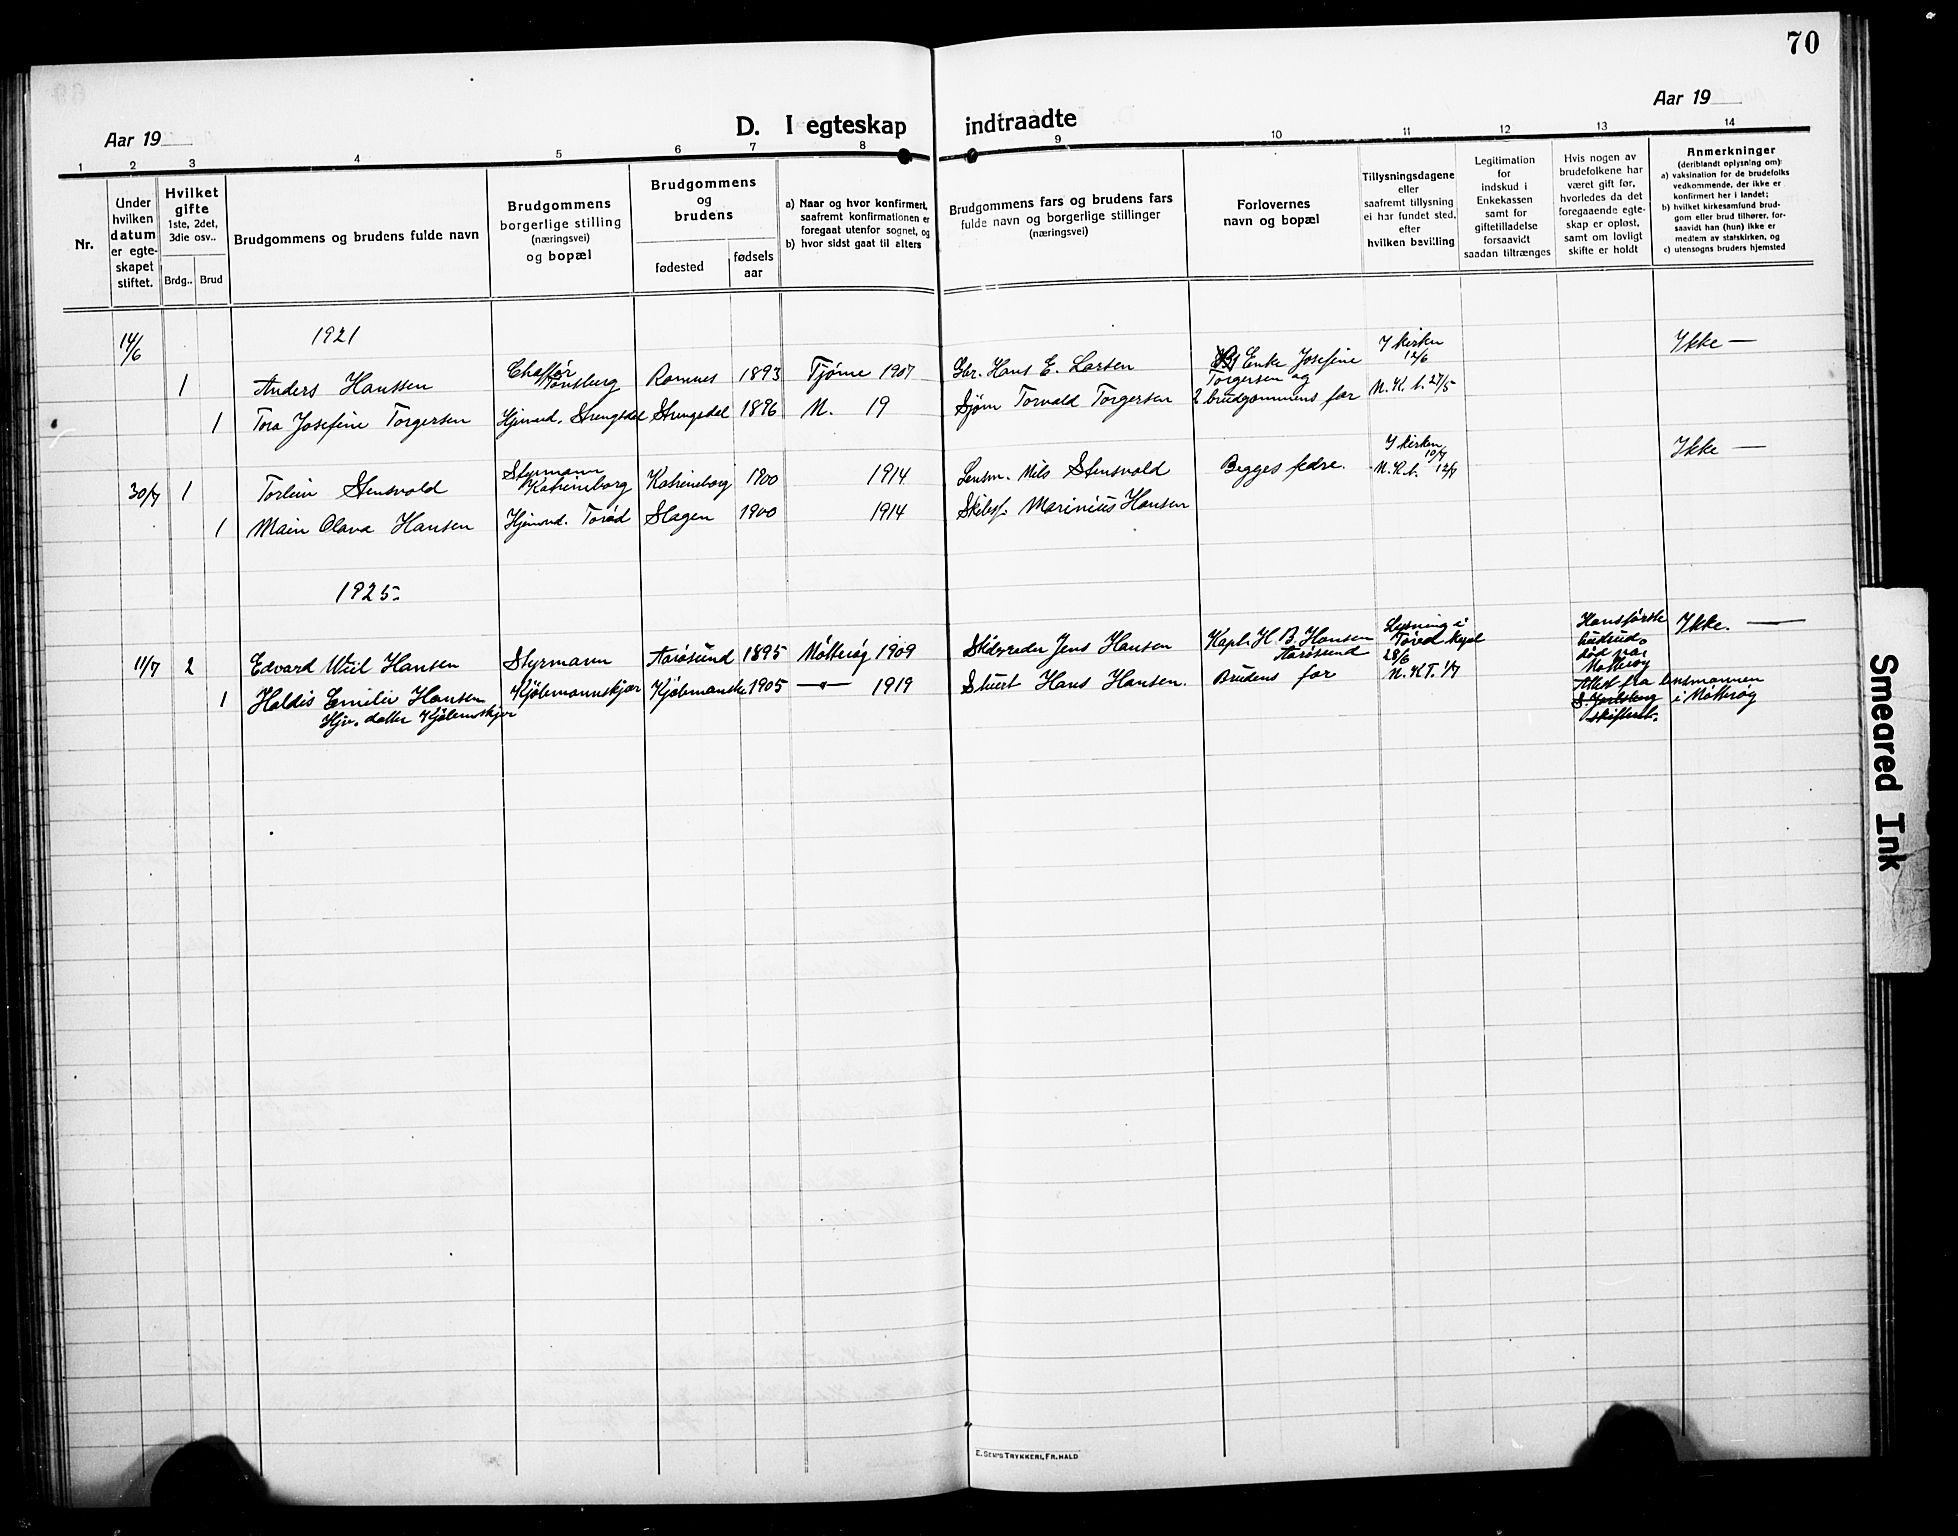 70
Aar 19
Aar 19
D. I egteskap indtraadte
1 2 3 4 5 6 7 8 9 10 11 12 13 14
Nr.
Under
hvilken
datum
er egte-
skapet
stiftet.
Hvilket
gifte
1ste, 2det,
3die osv..
Brdg.. Brud
Brudgommens og brudens fulde navn
Brudgommens
borgerlige stilling
(næringsvei)
og bopæl
Brudgommens
og
brudens
fødested
fødsels
aar
a) Naar og hvor konfirmert,
saafremt konfirmationen er
foregaat utenfor sognet, og
b) hvor sidst gaat til alters
Brudgommens fars og brudens fars
fulde navn og borgerlige stillinger
(næringsvei)
Forlovernes
navn og bopæl
Tillysningsdagene
eller
saafremt tillysning
ei har fundet sted,
efter
hvilken bevilling
Legitimation
for
indskud i
Enkekassen
samt for
giftetilladelse
forsaavidt
saadan tiltrænges
Hvis nogen av
brudefolkene har
været gift før,
hvorledes da det
foregaaende egte-
skap er opløst,
samt om lovligt
skifte er holdt
Anmerkninger
(deriblandt oplysning om):
a) vaksination for de brudefolks
vedkommende, der ikke er
konfirmert her i landet;
b) hvilket kirkesamfund brud-
gom eller brud tilhører, for-
saavidt han (hun) ikke er
medlem av statskirken, og
c) utensogns bruders hjemsted
1921
14/6
1 Anders Hanssen Chaffør Tønsberg Ramnes 1893 Tjøme 1907 Gbr. Hans E. Larsen Enke Josefine I kirken 12/6 Ikke —
1 Tora Josefine Torgersen Hjemvd. Strengsdal Strengsdal 1896 N. 19 Sjøm Torvald Torgersen Torgersen og 2 brudgommens far N.K.t. 27/5
30/7 1 Torlein Stensvold Styrmann Katrineborg Katrineborg 1900 1914 Lensm. Nils Stensvold Begges fedre. I kirken 10/7 N.K.t. 12/7 Ikke —
1 Main Olava Hansen Hjemvd. Torød Slagen 1900 1914 Skibsf. Marinius Hansen
1925.
11/7 2 Edvard Wiil Hansen Styrmann Aarøsund 1895 Nøtterøy 1909 Skibsreder Jens Hansen Kapt. H. B. Hansen Aarøsund Lysning i Torød kapel 28/6 Hans første hustrud død paa Nøtterøy Ikke. —
1 Haldis Emilie Hansen Kjøbmannskjær Kjøbmannsk 1905 —"— 1919 Stuert Hans Hansen. Brudens far N.K.T. 1/7 Attest fra lensmannen
Hjv. datter Kjøbmskjær S. Jarlsberg i Nøtterøy
skifterett.
E. SEM'S TRYKKERI, FR.HALD
Smeared Ink